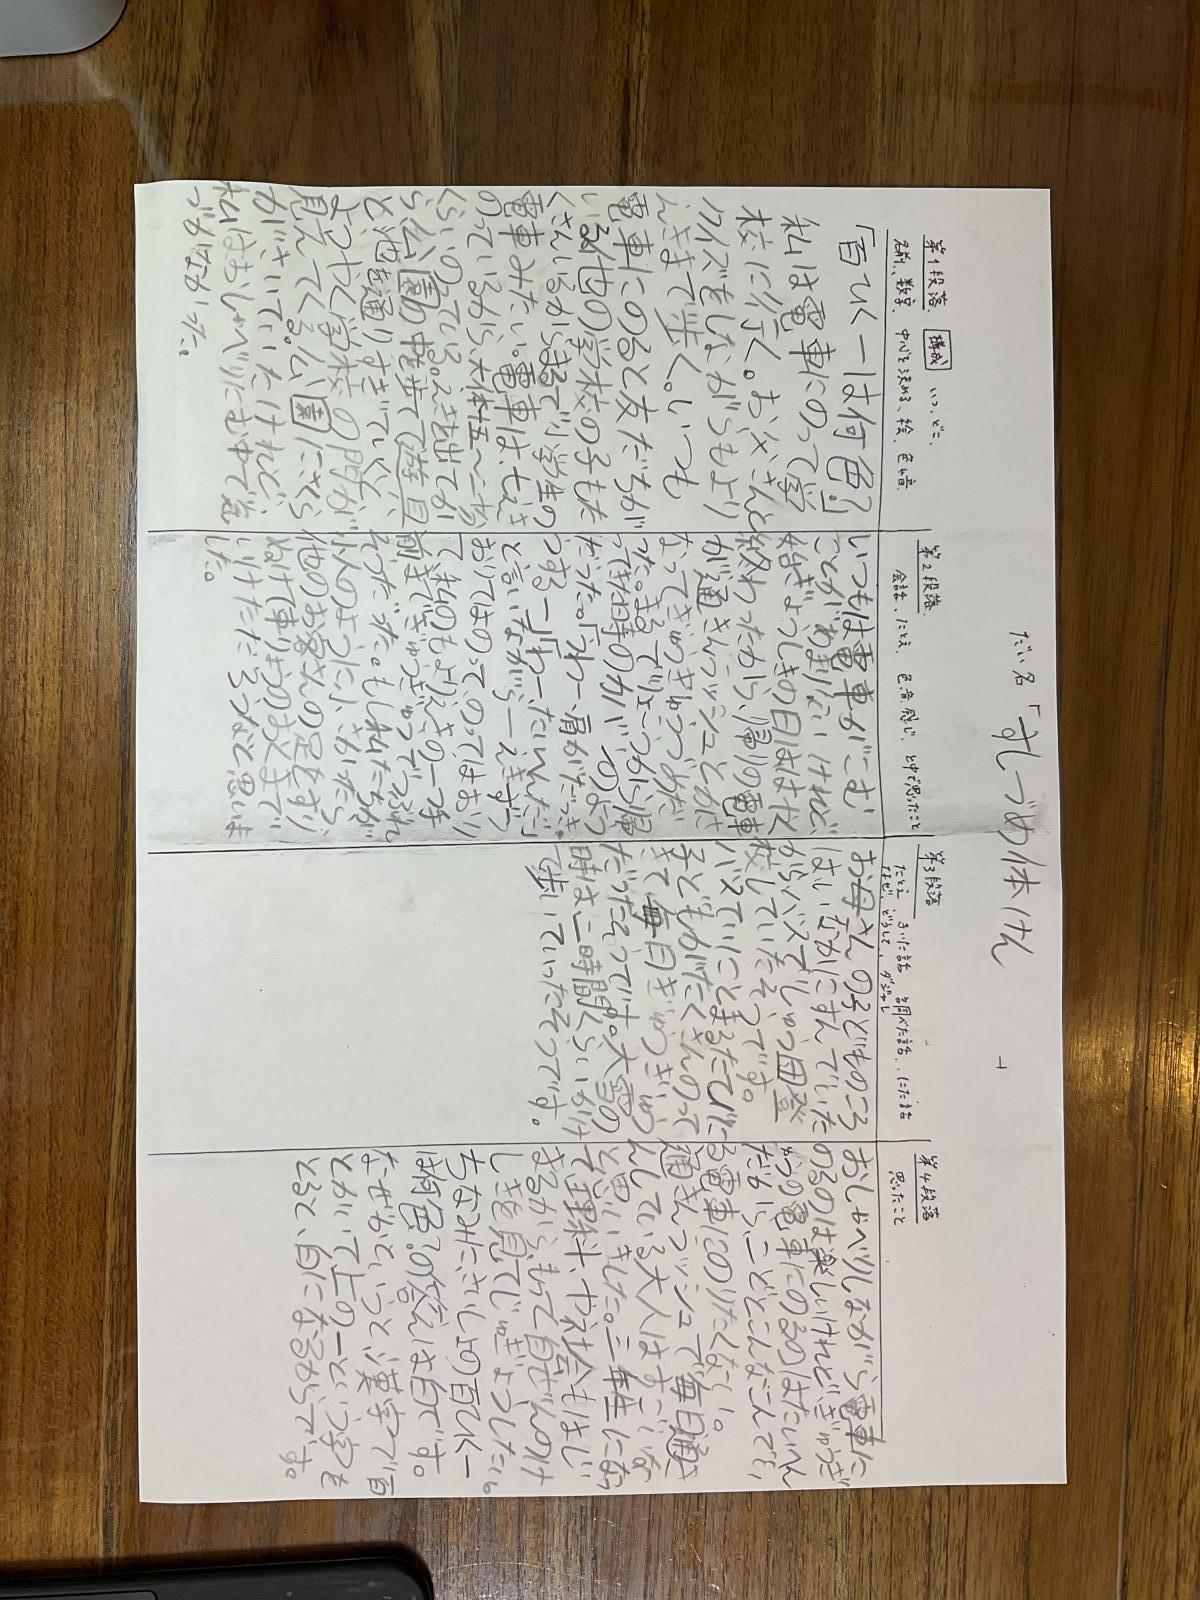 だい名「すしづめ体けん
第1段落 構成 いつ、どこ、
名前、数字、中心を決める、絵、色、音
「百ひく一は何色?」
私は電車にのって学
校に行く。お父さんと
クイズをしながらもより
えきまで歩く。いつも
電車にのると友だちが
いる。他の学校の子もた
くさんいるからまるで小学生の
電車みたい。電車は、七えき
のっているから大体十五〜二十分
くらいのっている。えきを出てか
ら公園の中を歩いて遊具
と池を通りすぎていくと、
ようやく学校の門が
見えてくる。公園にさくら
がさいていたけれど、
私はおしゃべりにむ中で気
づかなかった。
第2段落
会話、たとえ、色、音、感じ、と中で思ったこと
いつもは電車がこむ
ことがあまりないけれど
始ぎょうしきの日ははやく
終わったから、帰りの電車
が通きんラッシュとかさ
なってぎゅうぎゅうづめだ
った。まるでりょこうから帰
ってきた時のカバンのよう
だった。「うわー肩がだっき
ゅうするー」「わーたいへんだ」
と言いながら一えきずつ
おりてはのってのってはおり
て私のもよりえきの一つ手
前まできてぎゅうぎゅうでつぶれ
そうだった。もし私たちが
小人のように小さかったら、
他のお客さんの足をすり
ぬけて車りょうのおくまで
いけただろうなと思いま
した。
第3段落
たとえ きいた話 調べた話、にた話
なぜ、どうして、ダジャレ
お母さんの子どものころ
はいなかにすんでいた
からバスでじゅう回登
校していたそうです。
バスていにとまるたびに
子どもがたくさんのって
きて毎日ぎゅうぎゅう
だったそうです。大雪の
時は二時間くらいかけ
て歩いていったそうです。
第4段落
思ったこと
おしゃべりしながら電車に
のるのは楽しいけれどぎゅうぎ
ゅうの電車にのるのはたいへん
だから、二どとこんなこんでい
る電車にのりたくない。
通きんラッシュで毎日通き
んしている大人はすごいな
と思いました。三年生にな
て理科や社会もはじ
まるから、もっと自ぜんのけ
しきを見てじゅぎょうしたい。
ちなみにさいしょの百ひく一
は何色?の答えは白です。
なぜかというと漢字で百
とかいて上の一という字を
とると、白になるからです。